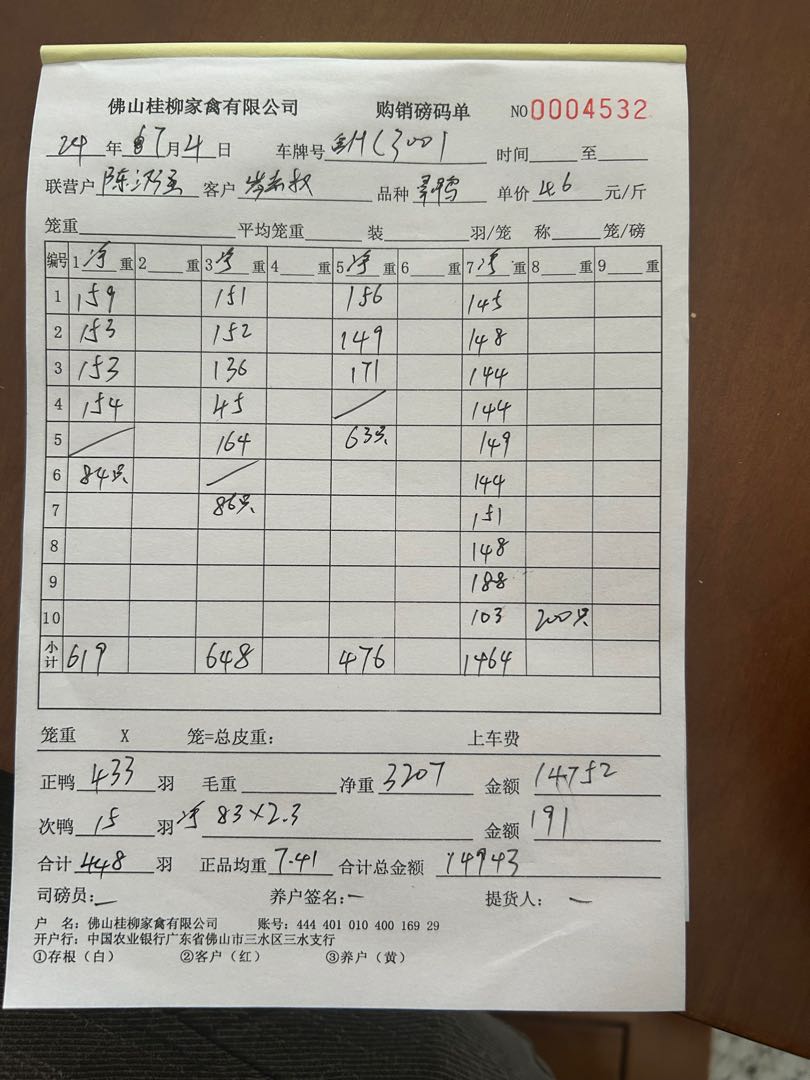 佛山桂柳家禽有限公司 购销磅码单 NO 0004532
24 年 7 月 4 日 车牌号 HC3001 时间 至
联营户 陈 客户 品种 鸭 单价 4.6 元/斤
笼重 平均笼重 装 羽/笼 称 笼/磅
编号 1 净 重 2 重 3 净 重 4 重 5 净 重 6 重 7 净 重 8 重 9 重
1 159 151 156 145
2 153 152 149 148
3 153 136 171 144
4 154 45 144
5 164 63只 149
6 84只 144
7 86只 151
8 148
9 188
10 103 200只
小计 619 648 476 1464
笼重 X 笼=总皮重: 上车费
正鸭 433 羽 毛重 净重 3207 金额 14752
次鸭 15 羽 净 83×2.3 金额 191
合计 448 羽 正品均重 7.41 合计总金额 14943
司磅员: 养户签名: 提货人:
户 名: 佛山桂柳家禽有限公司 账号: 444 401 010 400 169 29
开户行: 中国农业银行广东省佛山市三水区三水支行
①存根（白） ②客户（红） ③养户（黄）